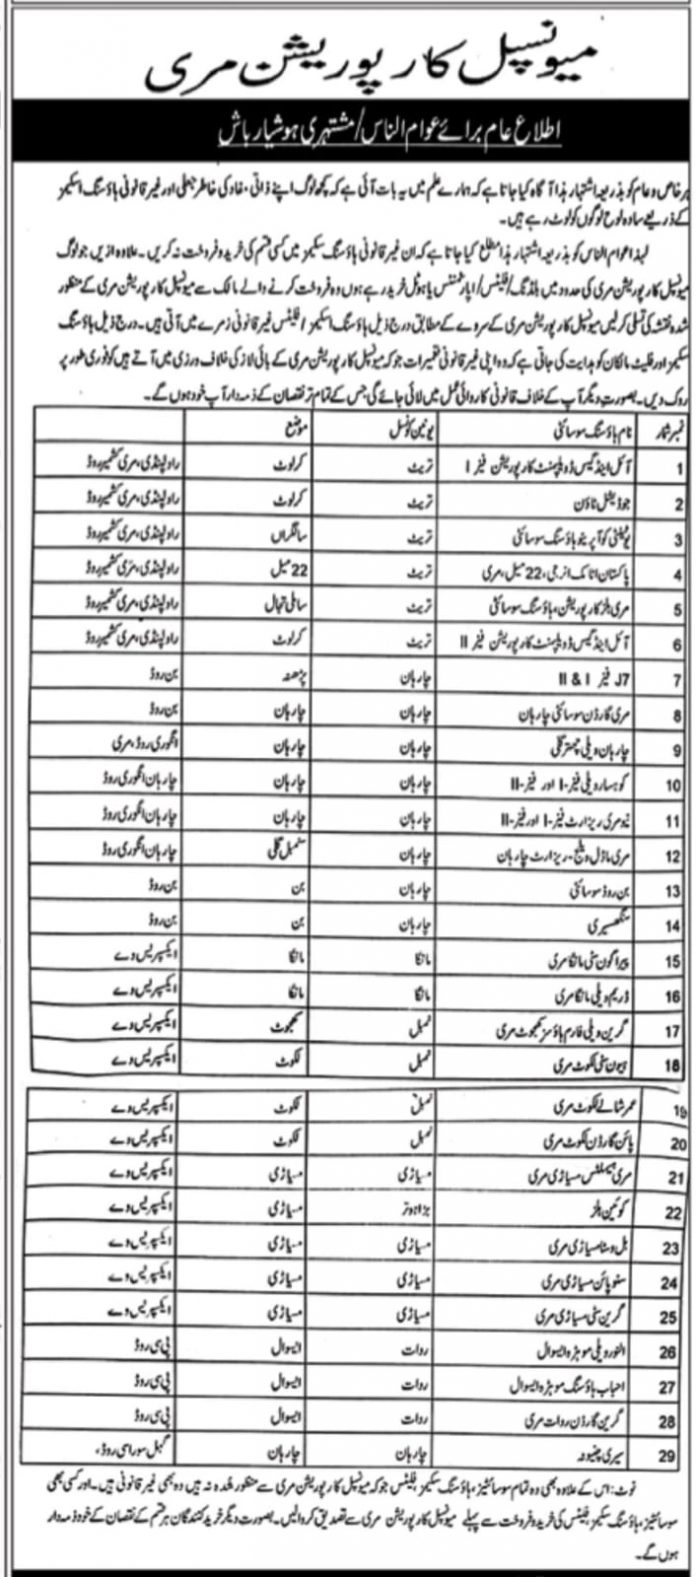 میونسپل کارپوریشن مری
اطلاع عام برائے عوام الناس/مشتہری ہوشیار باش
ہر خاص و عام کو بذریعہ اشتہار ہذا آگاہ کیا جاتا ہے کہ ہمارے علم میں یہ بات آئی ہے کہ کچھ لوگ اپنے ذاتی مفاد کی خاطر جعلی اور غیر قانونی ہاؤسنگ اسکیمز
کے ذریعے سادہ لوح لوگوں کو لوٹ رہے ہیں۔
لہذا عوام الناس کو بذریعہ اشتہار ہذا مطلع کیا جاتا ہے کہ ان غیر قانونی ہاؤسنگ سکیمز میں کسی قسم کی خرید و فروخت نہ کریں۔ علاوہ ازیں جو لوگ
میونسپل کارپوریشن مری کی حدود میں بلڈنگ/فلیٹس/اپارٹمنٹس یا ہوٹل خرید رہے ہوں وہ فروخت کرنے والے مالک سے میونسپل کارپوریشن مری کے منظور
شدہ نقشہ کی تسلی کر لیں میونسپل کارپوریشن مری کے سروے کے مطابق درج ذیل ہاؤسنگ اسکیمز/فلیٹس غیر قانونی زمرے میں آتی ہیں۔ درج ذیل ہاؤسنگ
سکیمز اور فلیٹ مالکان کو ہدایت کی جاتی ہے کہ وہ اپنی غیر قانونی تعمیرات جو کہ میونسپل کارپوریشن مری کے بائی لاز کی خلاف ورزی میں آتے ہیں کو فوری طور پر
روک دیں۔ بصورت دیگر آپ کے خلاف قانونی کاروائی عمل میں لائی جائے گی جس کے تمام تر نقصان کے ذمہ دار آپ خود ہوں گے۔
نمبر شمار نام ہاؤسنگ سوسائٹی یونین کونسل موضع
1 آئل اینڈ گیس ڈویلپمنٹ کارپوریشن فیز I تریٹ کرلوٹ راولپنڈی، مری کشمیر روڈ
2 جوڈیشل ٹاؤن تریٹ کرلوٹ راولپنڈی، مری کشمیر روڈ
3 یوٹیلٹی کوآپریٹو ہاؤسنگ سوسائٹی تریٹ سانگراں راولپنڈی، مری کشمیر روڈ
4 پاکستان اٹامک انرجی، 22 میل، مری تریٹ 22 میل راولپنڈی، مری کشمیر روڈ
5 مری بلڈ کارپوریشن، ہاؤسنگ سوسائٹی تریٹ راولپنڈی، مری کشمیر روڈ
6 آئل اینڈ گیس ڈویلپمنٹ کارپوریشن فیز II تریٹ کرلوٹ راولپنڈی، مری کشمیر روڈ
7 J7 فیز I & II چارہان پڑھنہ بن روڈ
8 مری گارڈن سوسائٹی چارہان چارہان چارہان بن روڈ
9 چارہان ویلی چھتر گلی چارہان چارہان انگوری روڈ، مری
10 کوہسار ویلی فیز-I اور فیز-II چارہان چارہان چارہان انگوری روڈ
11 نیو مری ریزارٹ فیز-I اور فیز-II چارہان چارہان چارہان انگوری روڈ
12 مری ماڈل ویلج-ریزارٹ چارہان چارہان سنمبل گلی چارہان انگوری روڈ
13 بن روڈ سوسائٹی چارہان بن بن روڈ
14 سنگھسیری چارہان بن بن روڈ
15 پیراگون سٹی مانگا مری مانگا مانگا ایکسپریس وے
16 ڈریم ویلی مانگا مری مانگا مانگا ایکسپریس وے
17 گرین ویلی فارم ہاؤسز کھجوٹ مری نمبل کھجوٹ ایکسپریس وے
18 ہیون سٹی لکوٹ مری نمبل لکوٹ ایکسپریس وے
19 عمر شالے لکوٹ مری نمبل لکوٹ ایکسپریس وے
20 پائن گارڈن لکوٹ مری نمبل لکوٹ ایکسپریس وے
21 مری ہیملٹس مسیاڑی مری مسیاڑی مسیاڑی ایکسپریس وے
22 کوئین ہلز مسیاڑی ایکسپریس وے
23 ہل وسٹا مسیاڑی مری مسیاڑی مسیاڑی ایکسپریس وے
24 سنو پائن مسیاڑی مری مسیاڑی مسیاڑی ایکسپریس وے
25 گرین سٹی مسیاڑی مری مسیاڑی مسیاڑی ایکسپریس وے
26 النور ویلی موہڑہ ایسوال روات ایسوال پی سی روڈ
27 احباب ہاؤسنگ موہڑہ ایسوال روات ایسوال پی سی روڈ
28 گرین گارڈن روات مری روات ایسوال پی سی روڈ
29 سیری چارہان چارہان گہل سوراسی روڈ،
نوٹ: اس کے علاوہ بھی وہ تمام سوسائٹیز، ہاؤسنگ سکیمز، فلیٹس جو کہ میونسپل کارپوریشن مری سے منظور شدہ نہ ہیں وہ بھی غیر قانونی ہیں۔ اور کسی بھی
سوسائٹیز، ہاؤسنگ سکیمز، فلیٹس کی خرید و فروخت سے پہلے میونسپل کارپوریشن مری سے تصدیق کروالیں۔ بصورت دیگر خرید کنندگان ہر قسم کے نقصان کے خود ذمہ دار
ہوں گے۔